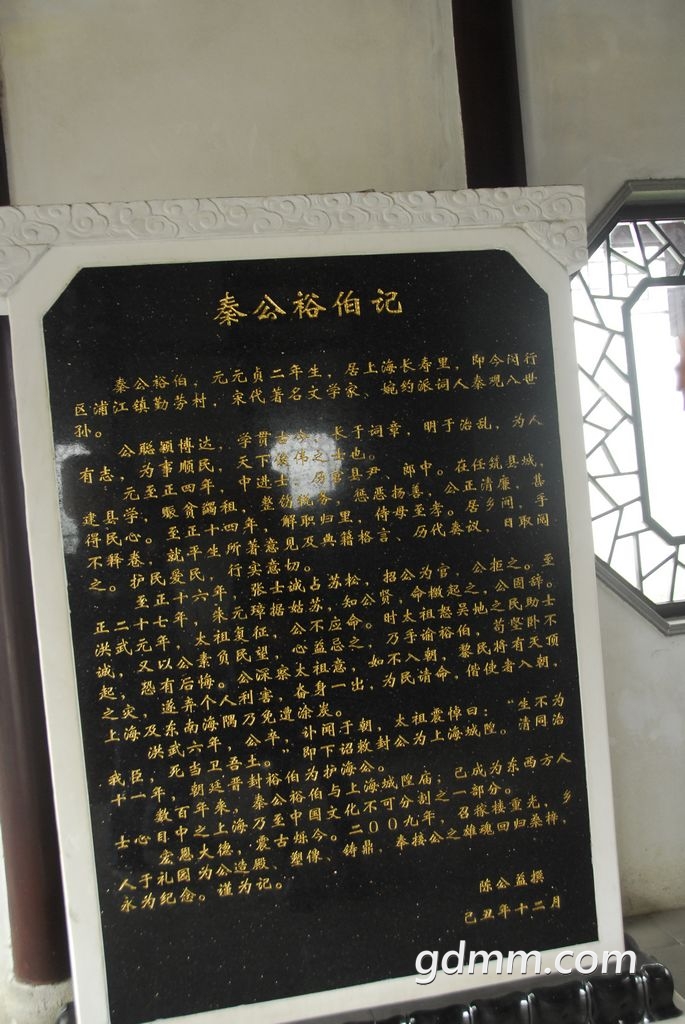 秦公裕伯记
秦公裕伯，元元贞二年生，居上海长寿里，即今闵行
区浦江镇勤劳村，宋代著名文学家、婉约派词人秦观八世
孙。
公聪颖博达，学贯古今，长于词章，明于治乱，为人
有志，为事顺民，天下豪伟之士也。
元至正四年，中进士，历 县尹、郎中。在任筑县城，
建县学，赈贫蠲租，整饬税务，惩恶扬善，公正清廉，甚
得民心。至正十四年，解职归里，侍母至孝。居乡间，手
不释卷，就平生所著意见及典籍格言、历代奏议，日取阅
之。护民爱民，行实意切。
至正十六年，张士诚占苏松，招公为官，公拒之。至
正二十七年，朱元璋据姑苏，知公贤，命檄起之，公固辞。
洪武元年，太祖复征，公不应命。时太祖怒吴地之民助士
诚，又以公素负民望，心益忌之，乃手谕裕伯，苟坚卧不
起，恐有后悔。公深察太祖意，如不入朝，黎民将有灭顶
之灾，遂弃个人利害，奋身一出，为民请命，偕使者入朝，
上海及东南海隅乃免遭涂炭。
洪武六年，公卒，讣闻于朝，太祖震悼曰：“生不为
我臣，死当卫吾土。”即下诏敕封公为上海城隍。清同治
十一年，朝廷晋封裕伯为护海公。
数百年来，秦公裕伯与上海城隍庙；已成为东西方人
士心目中之上海乃至中国文化不可分割之一部分。
宏恩大德，震古烁今。二〇〇九年，召稼楼重光，乡
人于礼园为公造殿、塑像、铸鼎，奉接公之雄魂回归桑梓，
永为纪念。谨为记。
陈公益撰
己丑年十二月
gdmm.com